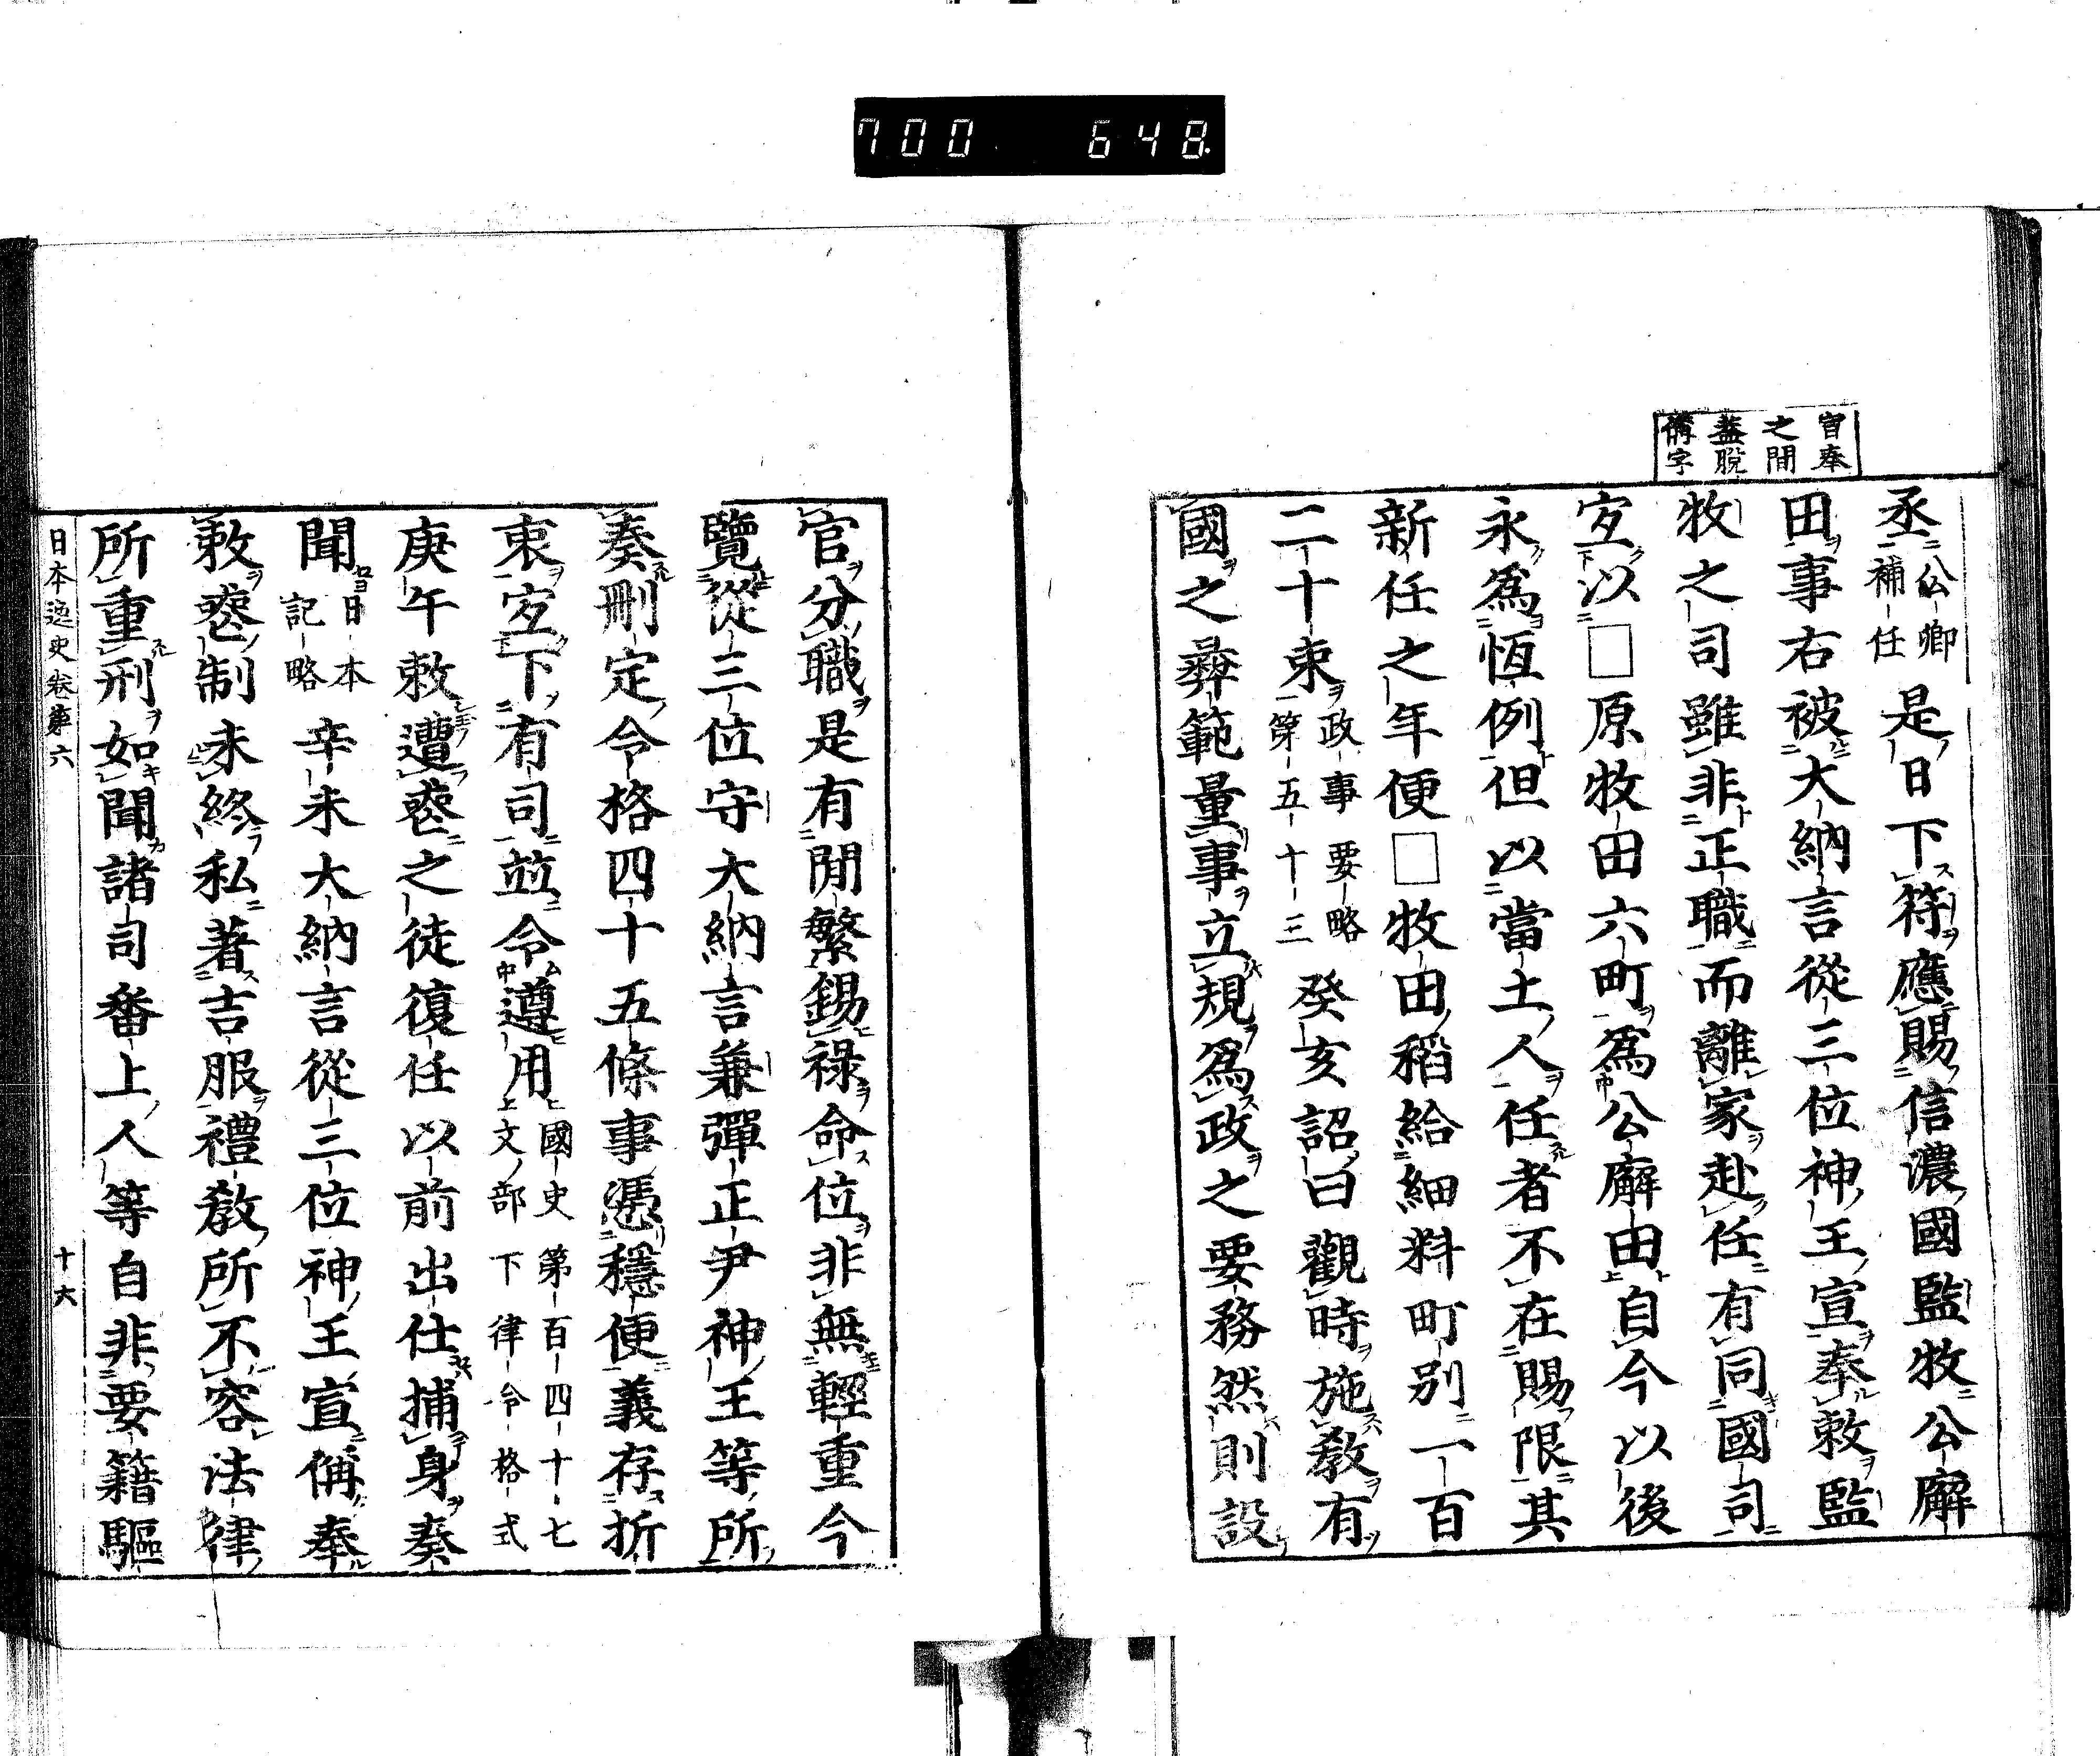 700 648.
宣奉
之間
蓋脫
偁字
丞公卿補任是日下符應賜信濃國監牧公廨
田事右被大納言從三位神王宣奉敕監
牧之司雖非正職而離家赴任有同國司
宐以□原牧田六町爲公廨田自今以後
永爲恆例但以當土人任者不在賜限其
新任之年便□牧田稻給細料町別一百
二十束政事要略第五十三癸亥詔曰觀時施敎有
國之彝範量事立規爲政之要務然則設
官分職是有閒繁錫祿命位非無輕重今
覽從三位守大納言兼彈正尹神王等所
奏刪定令格四十五條事憑穩便義存折
衷宐下有司竝令遵用國史第百四十七上文ノ部下律令格式
庚午敕遭䘮之徒復任以前出仕捕身奏
聞日本記略辛未大納言從三位神王宣偁奉
敕䘮制未終私著吉服禮敎所不容法律
所重刑如聞諸司番上人等自非要籍驅
日本逸史卷第六 十六